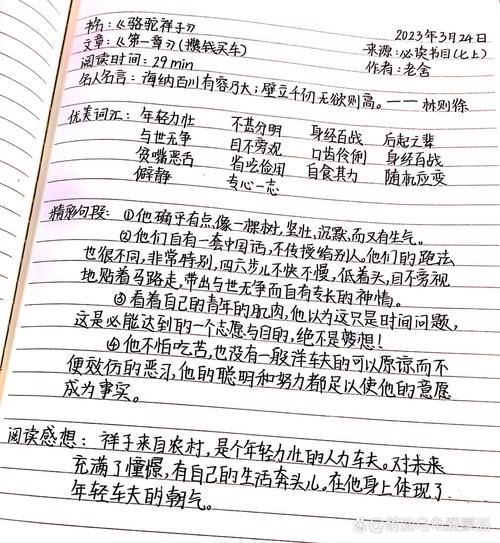 书名:《骆驼祥子》 2023年3月24日
文章:《第一章》(攒钱买车) 来源:必读书目(七上)
阅读时间:29min 作者:老舍
名人名言:海纳百川有容乃大;壁立千仞无欲则高。——林则徐
优美词汇:年轻力壮 不甚分明 身经百战 后起之辈
与世无争 目不旁观 口齿伶俐 身经百战
贫嘴恶舌 省吃俭用 自食其力 随机应变
僻静 专心一志
精彩句段:①他确乎有点像一棵树,坚壮,沉默,而又有生气。
②他们自有一套中国话,不传授给别人。他们的跑法
也很不同,非常特别,四六步儿不快不慢,低着头,目不旁视
地贴着马路走,带出与世无争而自有专长的神情。
③看着自己的青年的肌肉,他以为这只是时间问题,
这是必能达到的一个志愿与目的,绝不是梦想!
④他不怕吃苦,也没有一般洋车夫的可以原谅而不
便效仿的恶习,他的聪明和努力都足以使他的意愿
成为事实。
阅读感想:祥子来自农村,是个年轻力壮的人力车夫。对未来
充满了憧憬,有自己的生活奔头儿。在他身上体现了
年轻车夫的朝气。